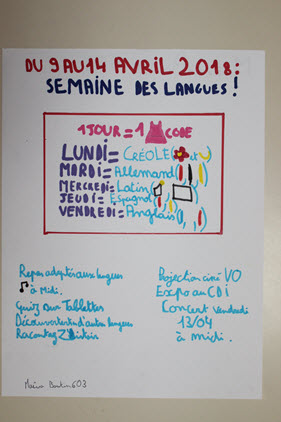 DU 9 AU 14 AVRIL 2018 :
SEMAINE DES LANGUES !
1 JOUR = 1 CODE
LUNDI = CRÉOLE ( et )
MARDI = Allemand ( , , )
MERCREDI = Latin ( , )
JEUDI = Espagnol ( , )
VENDREDI = Anglais ( , , )
Repas adaptés aux langues
à midi.
Quizz sur Tablettes
Découvertes d'autres langues
Racontez
Projection ciné VO
Expo au CDI
Concert vendredi
13/04
à midi.
603